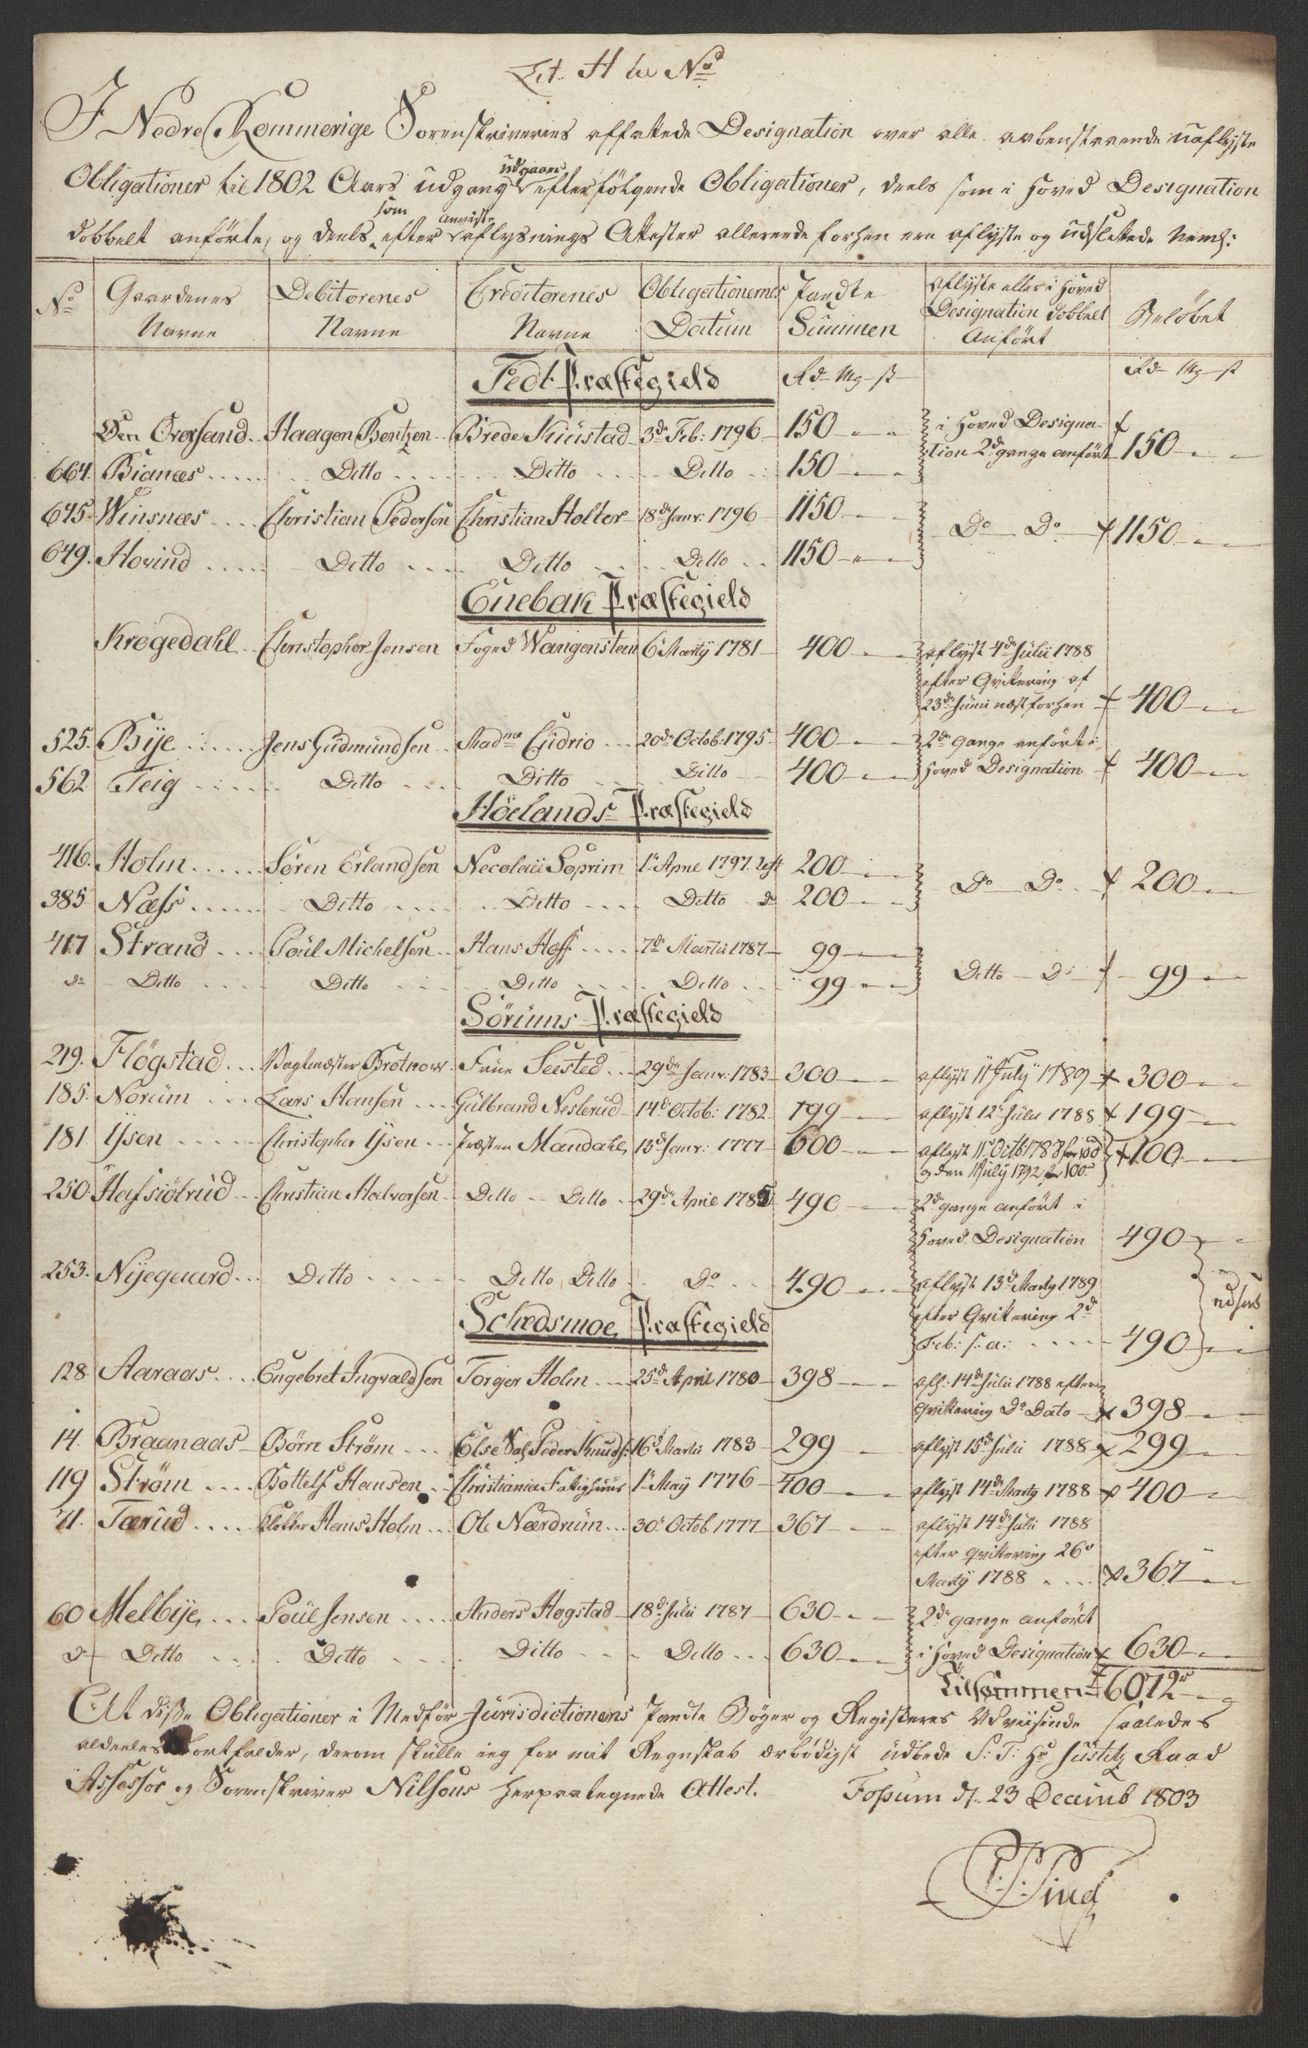 Lit. H de No
I Nedre Rommerige Sorenskriverens affattede Designation over alle aabenstaaende uaflyste
Obligationer til 1802 Aars udgang udgaaer efterfölgende Obligationer, deels som i Hoved Designation
dobbelt anförte, og deels som efter anviste aflysnings Attester allerede forhen ere aflyste og udslettede Neml:
No | Gaardenes Navne | Debitorenes Navne | Creditorenes Navne | Obligationernes Datum | Pandte Summen | Aflyste eller i Hoved Designation dobbelt Anfört | Beløbet
Fedt Præstegield | Rd Mg ß | Rd Mg ß
Øen Oversand | Haagen Bentzen | Brede | 3d Feb: 1796 | 150 | i Hoved Designa-
664. Bianæs | Ditto | Ditto | Ditto | 150 | tion 2de gange anfört | 150
645. Winsnæs | Christian Pedersen | Christian Holter | 18d Janv: 1796 | 1150 | Do Do | 1150
649. Hovind | Ditto | Ditto | Ditto | 1150
Enebak Præstegield
Krogedahl | Christopher Jensen | Foged Wangensteen | 6 Marty 1781 | 400 | aflyst 4d Julii 1788
efter Qvittering af
23d Juni næst forhen | 400
525. Bye | Jens Gudmundsen | Madme | 20d Octob. 1795 | 400 | 2de gange anfört i
562 Teig | Ditto | Ditto | Ditto | 400 | Hoved Designation | 400
Höelands Præstegield
416. Holm | Søren Erlandsen | Necolaii Soprim | 1 April 1797 | 200 | Do Do | 200
385 Næss | Ditto | Ditto | Ditto d | 200
417 Strand | Poul Michelsen | Hans Hoff | 7d Martii 1787 | 99 | Ditto D: | 99
d Ditto | Ditto | Ditto | Ditto | 99
Sörums Præstegield
219. Flögstad | Bogtrt | Frue Seested | 29de Janv: 1783 | 300 | aflyst 11 July 1789 | 300
185. Norum | Lars Hansen | Gulbrand Neslerud | 14d Octob: 1782 | 199 | aflyst 12 Julii 1788 | 199
181 Ysen | Christopher Ysen | Præsten Mandahl | 13d Janv: 1777 | 600 | aflyst 11 Octb 1788 for
og den 11 July 1792 for 100 | 100
250 | Christian Halvorsen | Ditto Ditto | 29de April 1785 | 490 | 2de gange anfört i
Hoved Designation | 490
253. Nyegaard | Ditto | Ditto Ditto | Do | 490 | aflyst 13d Marty 1789
efter Qvittering 2d
Feb: s: a: | 490
Schedsmoe Præstegield
128 Aaraas | Engebret Ingvaldsen | Torger Holm | 25d April 1780 | 398 | afl: 14d Julii 1788 efter
Qvittering Do Dato | 398
14. Braanaas | Börn Ström | Else Sal. Peder Knuds: | 16d Martii 1783 | 299 | aflyst 15d Julii 1788 | 299
119 Ström | Bottelf Hansen | Christiania Fattighuus | 1 May 1776 | 400 | aflyst 14d Marty 1788 | 400
71. Tærud | Hans Holm | Ole Nærdrum | 30 Octob 1777 | 367 | aflyst 14d Julii 1788
efter Qvittering 26
Marty 1788 | 367
60 Melbye | Poul Jensen | Anders Hogstad | 18d Julii 1787 | 630 | 2de gange anfört
d Ditto | Ditto | Ditto | Ditto | 630 | i Hoved Designation | 630
Tilsammen 6072
At disse Obligationer i Medför Jurisdictionens Pandte Böger og Registeres Udviisende saaledes
aldeeles bortfalder, derom skulle ieg for mit Regnskab ærbödigst udbede S: T: Hr Justitz Raad
Assessor og Sorenskriver Nilsons herpaategnede Attest. Fossum d. 23 Decemb 1803